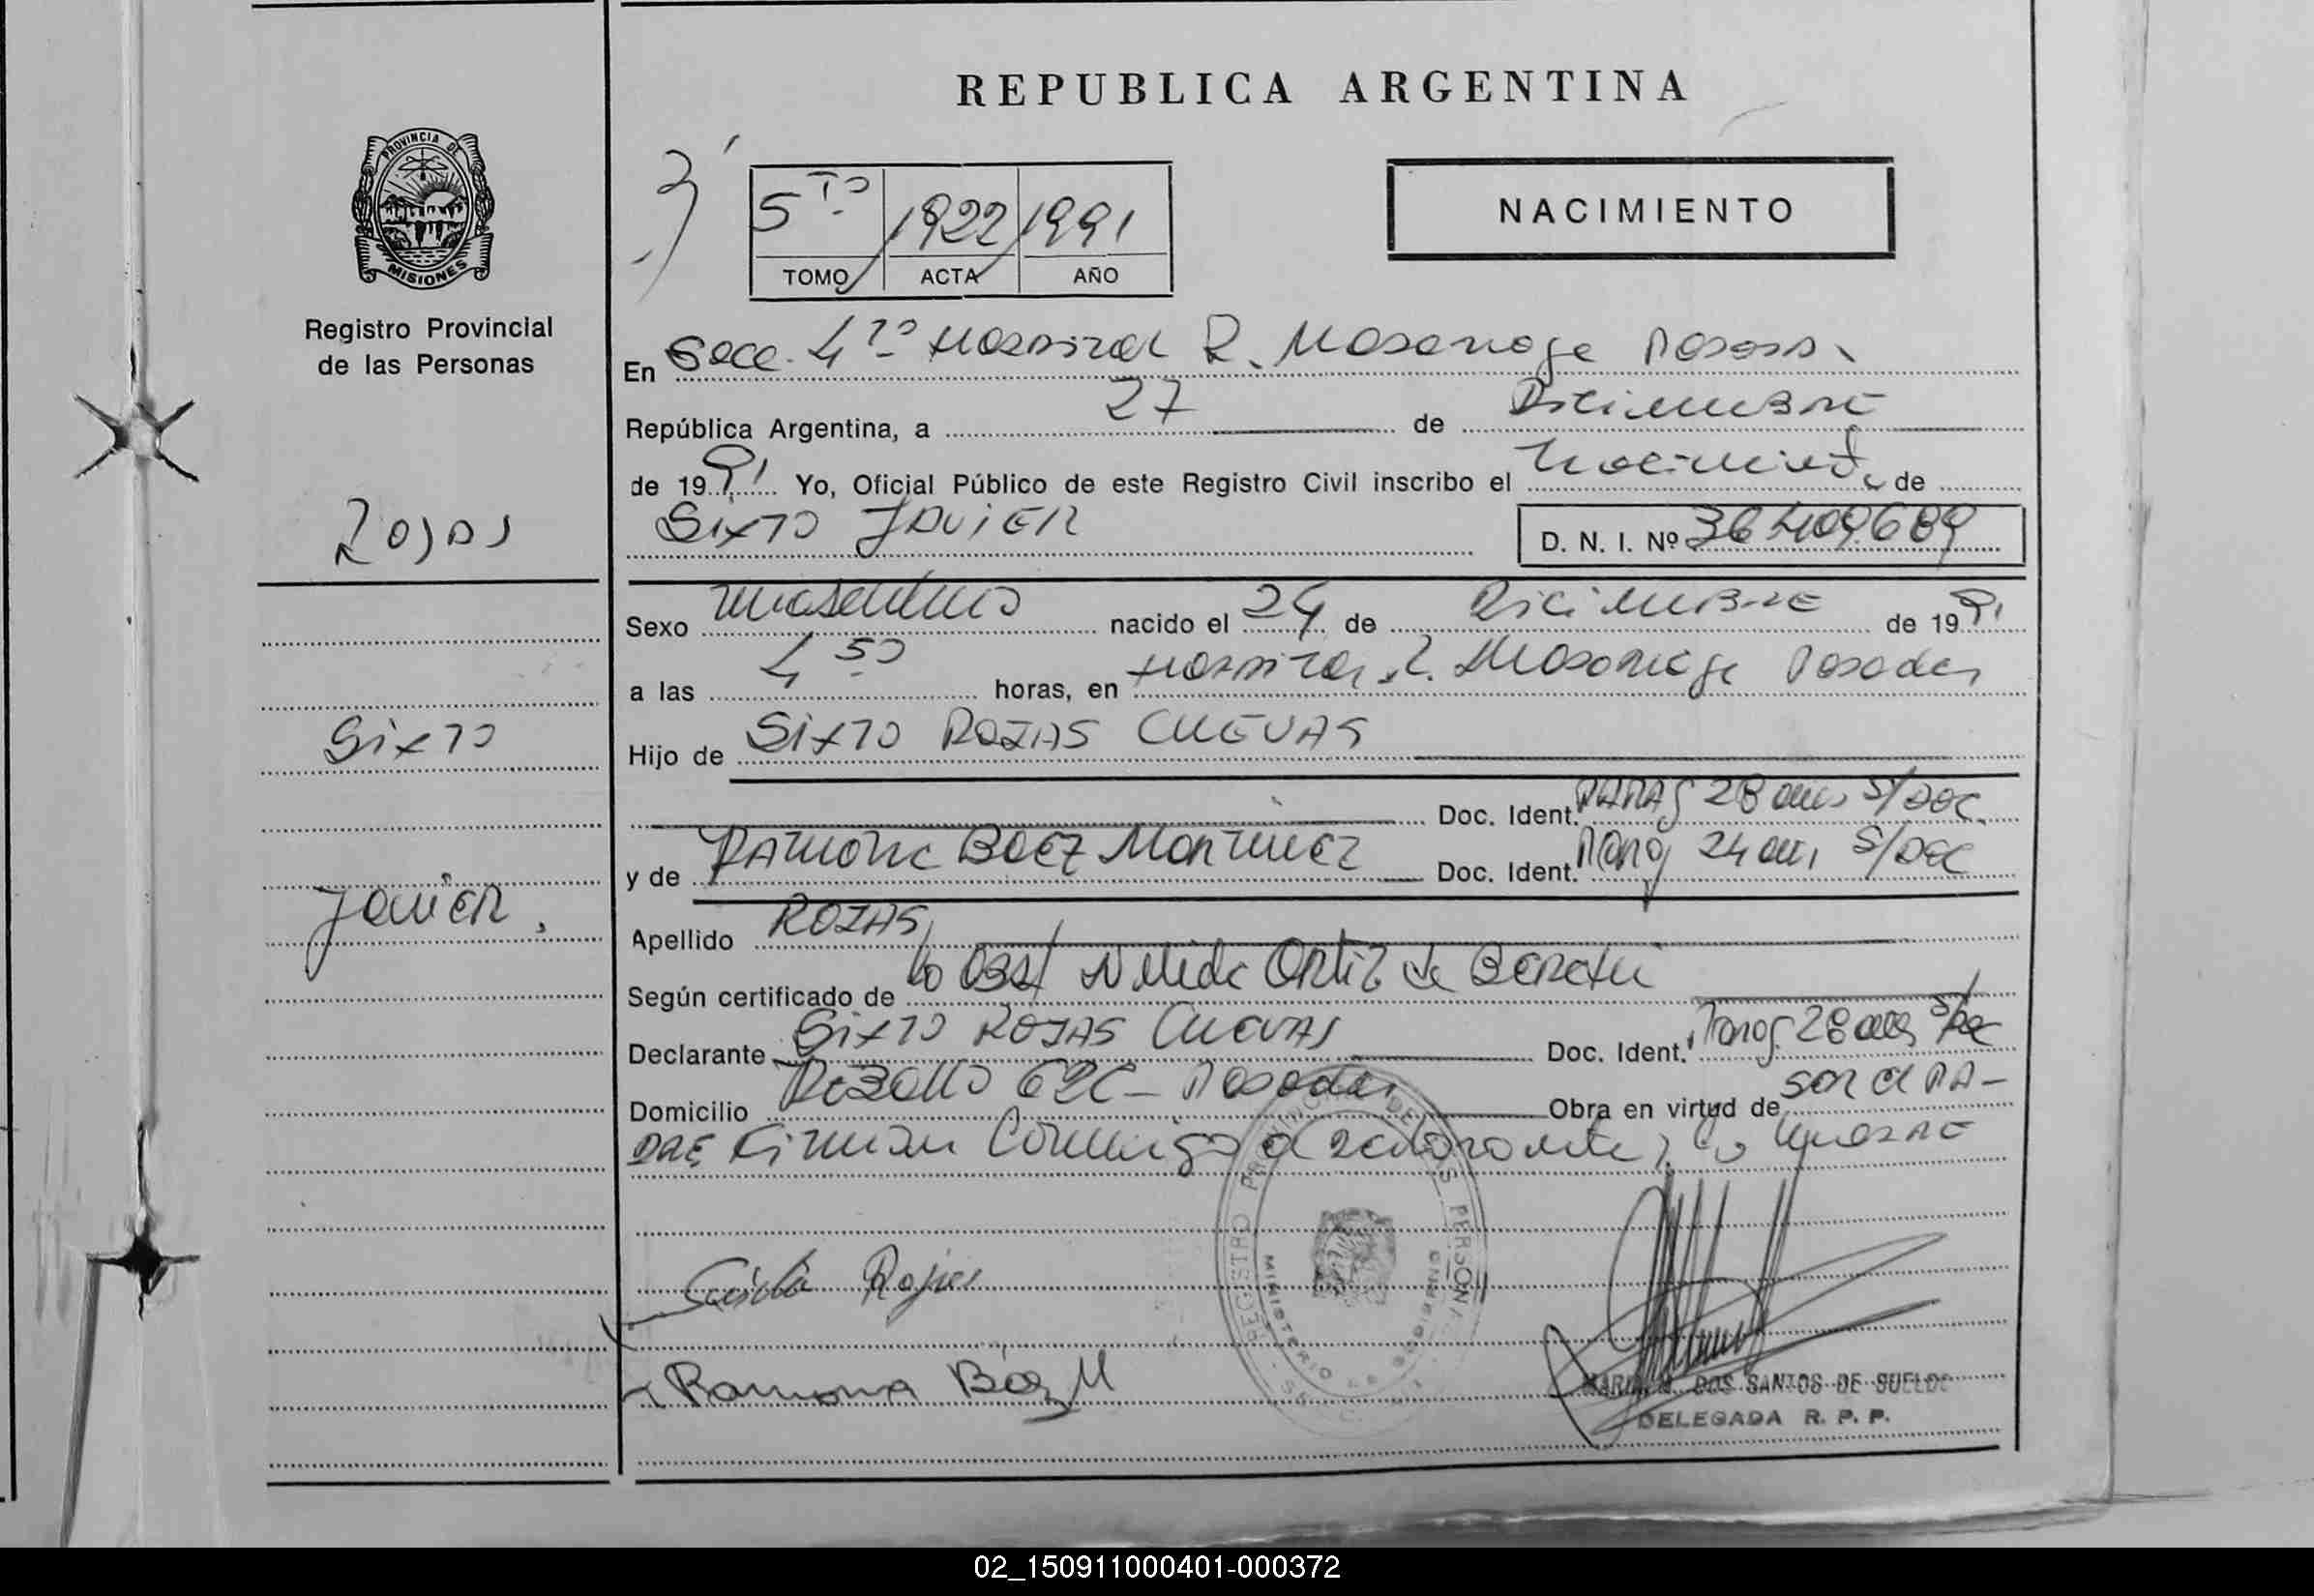 REPUBLICA ARGENTINA
PROVINCIA DE
MISIONES
Registro Provincial
de las Personas
5TO 1922 1991
TOMO ACTA AÑO
NACIMIENTO
En Secc. 4TO Hospital R. Madariaga Posadas
República Argentina, a 27 de Diciembre
de 1991 Yo, Oficial Público de este Registro Civil inscribo el nacimiento de
Rojas
SIXTO JAVIER D. N. I. Nº 36409689
Sexo masculino nacido el 24 de Diciembre de 1991
a las 4 50 horas, en Hospital R. Madariaga Posadas
Sixto
Hijo de SIXTO ROJAS CUEVAS
Doc. Ident. PARAG 28 años S/DOC.
y de RAMONA BAEZ MARTINEZ Doc. Ident. Parag 24 años S/DOC
Javier.
Apellido ROJAS
Según certificado de la Obst Nelida Ortiz de
Declarante SIXTO ROJAS CUEVAS Doc. Ident. Parag. 28 años S/Doc
Domicilio Posadas Obra en virtud de ser el PA-
DRE Firman conmigo el declarante y la madre
REGISTRO PROVINCIAL DE LAS PERSONAS
MINISTERIO DE GOBIERNO
Rojas
Ramona Báez M
MARIA N. DOS SANTOS DE SUELDO
DELEGADA R. P. P.
02_150911000401-000372